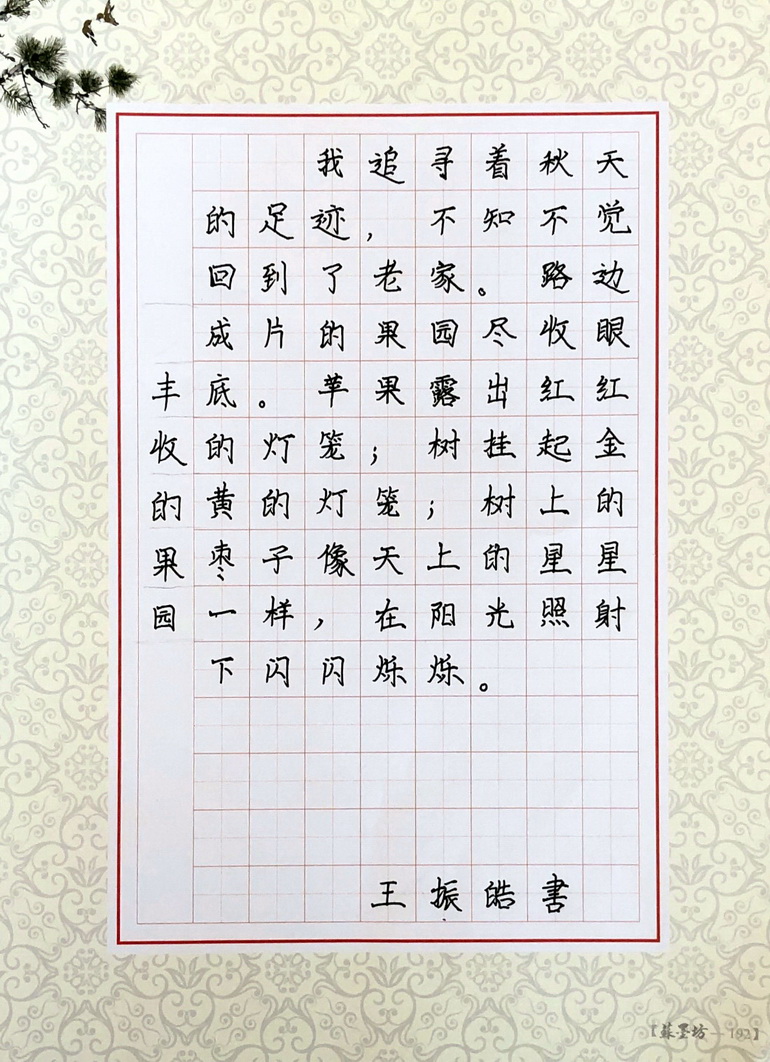 丰收的果园
我追寻着秋天
的足迹，不知不觉
回到了老家。路边
成片的果园尽收眼
底。苹果露出红红
的灯笼；树挂起金
黄的灯笼；树上的
枣子像天上的星星
一样，在阳光照射
下闪闪烁烁。
王振皓書
【蘇墨坊—192】